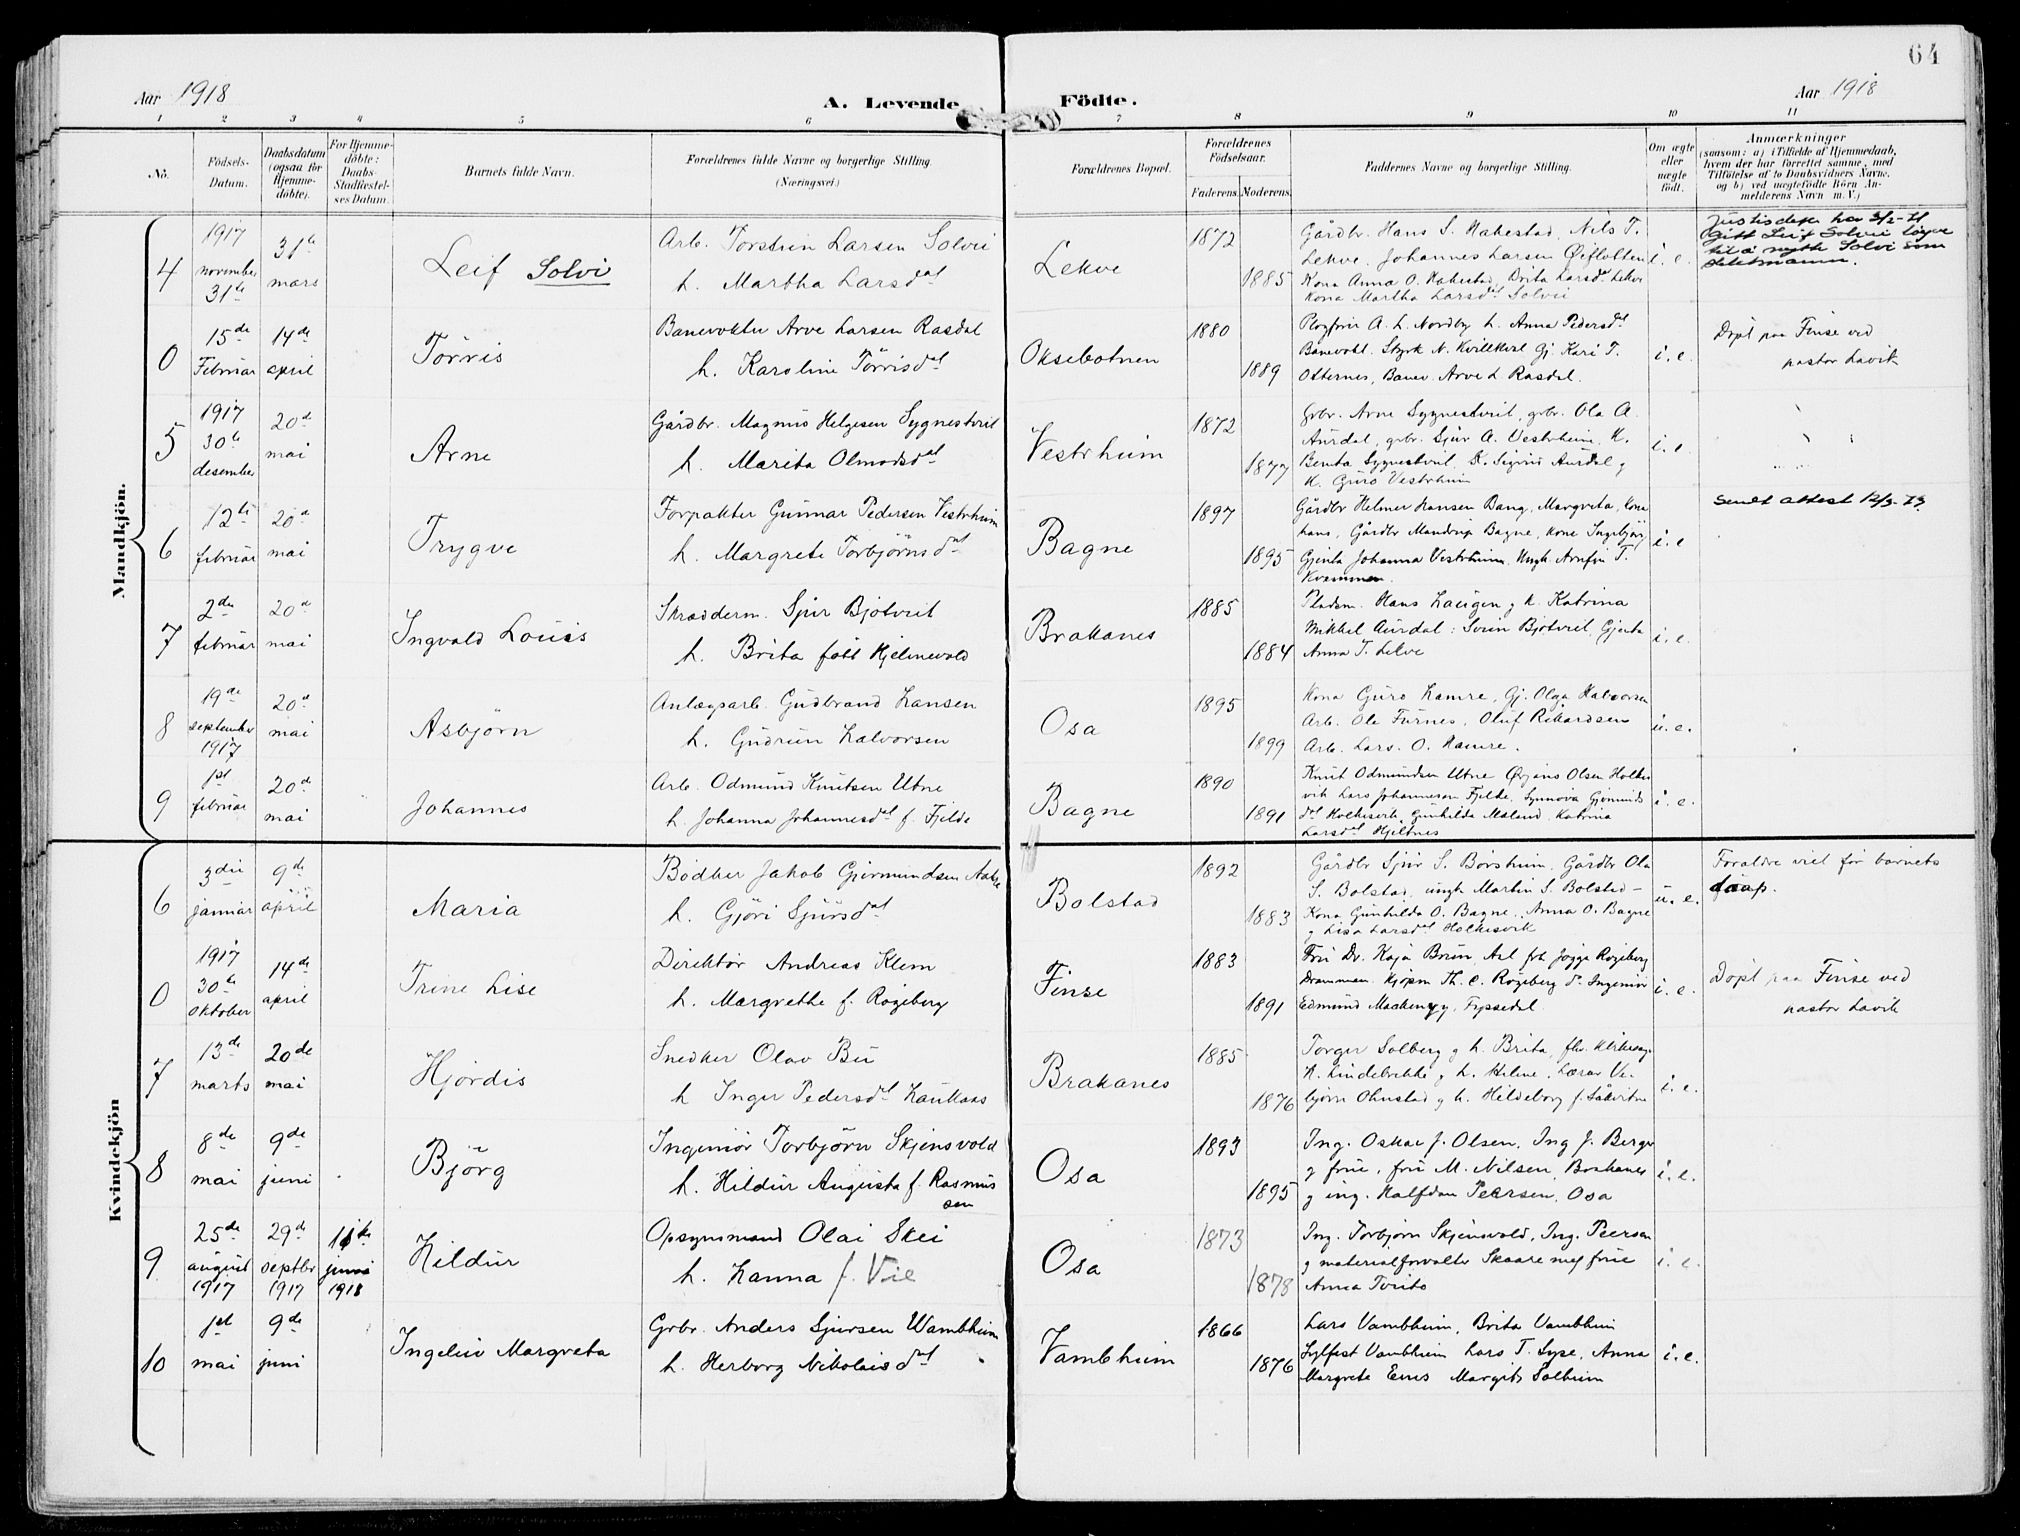 64
Aar 1918
A. Levende
Födte.
Aar 1918
1 2 3 4 5 6 7 8 9 10 11
No.
Födsels-
Datum.
Daabsdatum
(ogsaa for
Hjemme-
döbte).
For Hjemme-
döbte:
Daabs-
Stadfæstel-
ses Datum.
Barnets fulde Navn.
Forældrenes fulde Navne og borgerlige Stilling.
(Næringsvei.)
Forældrenes Bopæl.
Forældrenes
Födselsaar.
Faderens.
Moderens.
Faddernes Navne og borgerlige Stilling.
Om ægte
eller
uægte
födt.
Anmærkninger
(saasom: a) i Tilfælde af Hjemmedaab,
hvem der har forrettet samme, med
Tilföielse af to Daabsvidners Navne,
og b) ved uægtefödte Börn An-
melderens Navn m. V.)
Mandkjön.
4
1917
november
31te
31te
mars
Leif Solvi
Arb. Torstein Larsen Solvii
h. Martha Larsdat
Lekve
1872
1885
Gårdbr. Hans S. Hakestad, Nils T.
Lekve, Johannes Larsen
Kona Anna O. Hakestad, Brita Larsdat Lekve
Kona Martha Larsdat Solvii
i. e.
gitt Leif Solvii
til å Solvi som
0
15de
Februar
14de
april
Törris
Banevokter Arve Larsen Rasdal
h. Karoline Törrisdat
Oksebotnen
1880
1889
A. L. Nordby h. Anna Pedersdat
Banevokt. Styrk N. Kvilekval Gj. Kari T.
Otternes, Banev. Arve L Rasdal.
i. e.
Döpt paa Finse ved
pastor Lavik
5
1917
30te
desember
20de
mai
Arne
Gårdbr. Magnus Helgesen Sygnestveit
h. Marita Olmodsdat
Vestrheim
1872
1877
Grbr. Arne Sygnestveit, grbr. Ola A.
Aurdal, grbr. Sjur A. Vestrheim, K.
Bernta Sygnestveit, K. Sigrid Aurdal g
K. Guro Vestrheim
i. e
6
12te
februar
20de
mai
Trygve
Forpakter Gunnar Pedersen Vestrheim
h. Margrete Torbjörnsdat
Bagne
1897
1895
Gårdbr Helmer Hansen Bang, Margreta, kona
hans, Gårdbr Mandrup Bagne, kone Ingebjör,
Gjenta Johanna Vestrheim, Ungk. Arnfin T.
Kvammen.
i. e
Sendt attest 12/3-73.
7
2den
februar
20de
mai
Ingvald Louis
Skrædderm. Sjur Bjotveit
h. Brita fött Hjelmevold
Brakanes
1885
1884
Pladsm. Hans Haugen g h. Katrina
Mikkel Aurdal: Svein Bjotveit, Gjenta
Anna T. Lekve
i. e.
8
19de
september
1917
20de
mai
Asbjörn
Anlægsarb. Gudbrand Hansen
h. Gudrun Halvorsen
Osa
1895
1899
Kona Guro Hamre, Gj. Olga Halvorsen
Arb. Ole Furnes, Oluf Rikardsen
Arb. Lars O. Hamre.
u. e.
9
1st
februar
20de
mai
Johannes
Arb. Odmund Knutsen Utne
h. Johanna Johannesdat f. Fjelde
Bagne
1890
1891
Knut Odmundsen Utne Örjans Olsen Holkes
vik Lars Johannesen Fjelde, Synnöva Gjermunds
dat, Gunhilda Maland, Katrina
Larsdat Hjeltnes
i. e.
Kvindekjön
6
3die
januar
9de
april
Maria
Bödker Jakob Gjermundsen
h. Gjöri Sjursdat
Bolstad
1892
1883
Gårdbr Sjur S. Börsheim, Gårdbr Ola
S. Bolstad, ungk Martin S. Bolstad -
Kona Gunhilda O. Bagne, Anna O. Bagne
g Lisa Larsdat Holkesvik
u. e.
Foraldre viet för barnets
daap.
0
1917
30te
oktober
14de
april
Trine Lise
Direktör Andreas Klem
h. Margrethe f. Rogeberg
Finse
1883
1891
Fru Dr. Kaja Bruun, frk Rogeberg
Drammen, Kjöpm Th. C. Rogeberg Ingeniör
Edmund Mackenzy,
i. e.
Döpt paa Finse ved
pastor Lavik
7
13de
marts
20de
mai
Hjördis
Snedker Olav Bu
h Inger Pedersdat Haukaas
Brakanes
1885
1876
Torger Solberg g h. Brita,
K. Lindebrekke g h. Helene, Lærar Ve-
björn Ohnstad g h. Hildeborg f.
i. e.
8
8de
mai
9de
juni
Björg
Ingeniör Torbjörn Skjensvold
h. Hildur Augusta f. Rasmus
sen
Osa
1893
1895
Ing. Oskar J. Olsen, Ing J. Berger
g frue, fru M. Nilsen, Brakanes
g ing. Halfdan Peersen, Osa
i. e.
9
25de
august
1917
29de
septbr
1917
11te
juni
1918
Hildur
Opsynsmand Olai Skei
h. Hanna f. Vie
Osa
1873
1878
Ing. Torbjörn Skjensvold, Ing. Peersen
g materialforvalter Skaare med frue
Anna Tveito
i. e.
10
1st
mai
9de
juni
Ingeleiv Margreta
Grbr. Anders Sjursen Wambheim
h. Herborg Nikolaisdat
Vambheim
1866
1876
Lars Vambheim, Brita Vambheim
Sylfest Vambheim Lars T. Syse, Anna
Margreta Eines Margit Solheim
i. e.